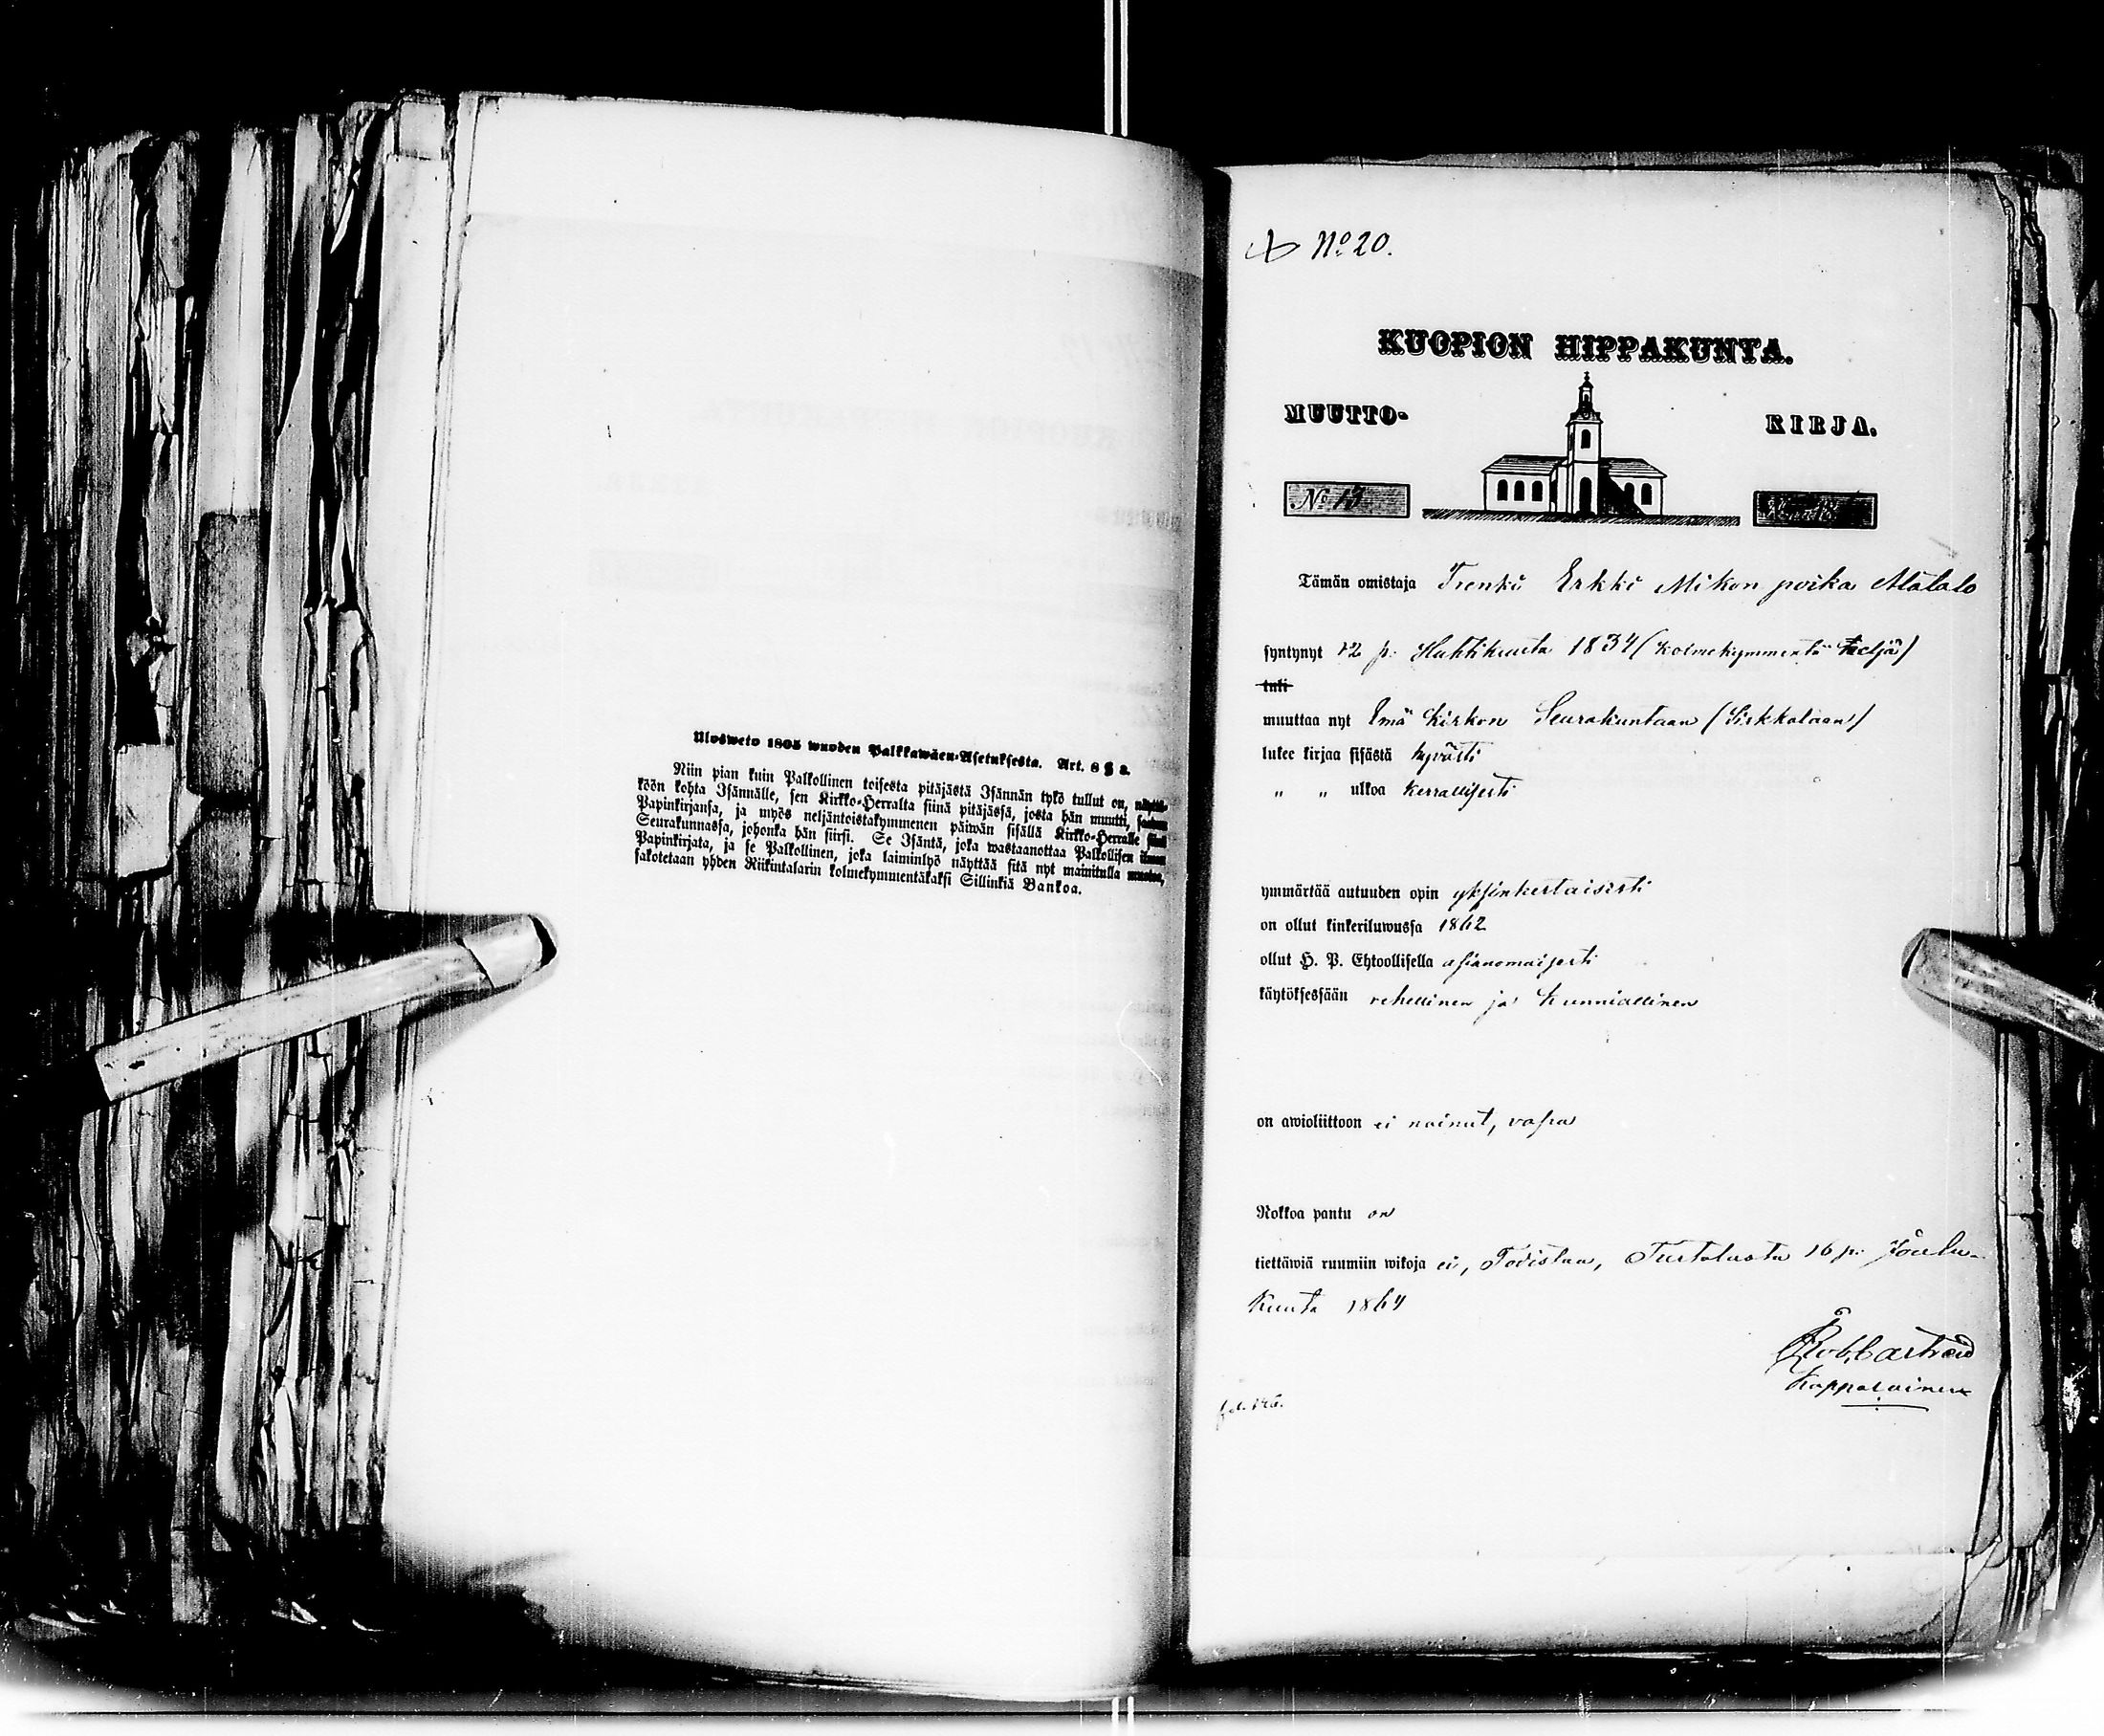 Ulosweto 1805 wuoden Palkkawäen-Asetuksesta. Art. 8 § 3.
Niin pian kuin Palkollinen toisesta pitäjästä Isännän tykö tullut on,
köön kohta Isännälle, sen Kirkko-Herralta siinä pitäjässä, josta hän muutti,
Papinkirjansa, ja myös neljäntoistakymmenen päiwän sisällä Kirkko-Herralle
Seurakunnassa, johonka hän siirsi. Se Isäntä, joka wastaanottaa Palkollisen ilman
Papinkirjata, ja se Palkollinen, joka laiminlyö näyttää sitä nyt mainitulla
sakotetaan yhden Riikintalarin kolmekymmentäkaksi Sillinkiä Bankoa.
No 20.
KUOPION HIPPAKUNTA.
MUUTTO- KIRJA.
No 13
Tämän omistaja Trenki Erkki Mikon poika Alatalo
syntynyt 12 p: Huhtikuuta 1834 (kolmekymmentä neljä)
tuli
muuttaa nyt Emä Kirkon Seurakuntaan (Sirkkalaan)
lukee kirjaa sisästä hyvästi
" " ulkoa kerrallisesti
ymmärtää autuuden opin yksinkertaisesti
on ollut kinkeriluwussa 1862
ollut H. P. Ehtoollisella asianomaisesti
käytöksessään rehellinen ja kunniallinen
on awioliittoon ei nainut, vapa
Rokkoa pantu on
tiettäwiä ruumiin wikoja ei, Todistaa, Turtolasta 16 p: Joulu-
kuuta 1864
Kappalainen
fol. 126.